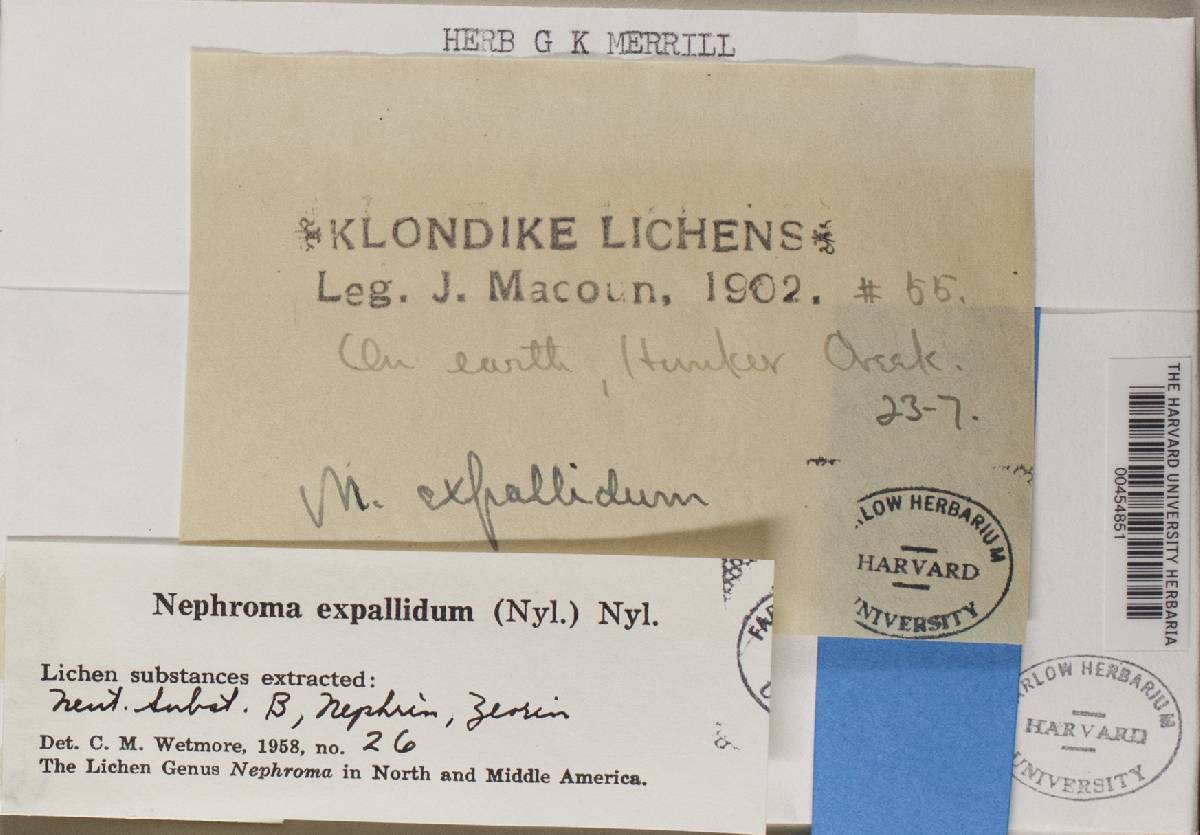 HERB G K MERRILL
KLONDIKE LICHENS
Leg. J. Macoun, 1902. # 55.
On earth, Hunker Creek.
23-7.
N. expallidum
RLOW HERBARIUM
HARVARD
UNIVERSITY
Nephroma expallidum (Nyl.) Nyl.
Lichen substances extracted:
neut. subst. B, Nephrin, Zeorin
Det. C. M. Wetmore, 1958, no. 26
The Lichen Genus Nephroma in North and Middle America.
FA
THE HARVARD UNIVERSITY HERBARIA
00454851
RLOW HERBARIUM
HARVARD
UNIVERSITY